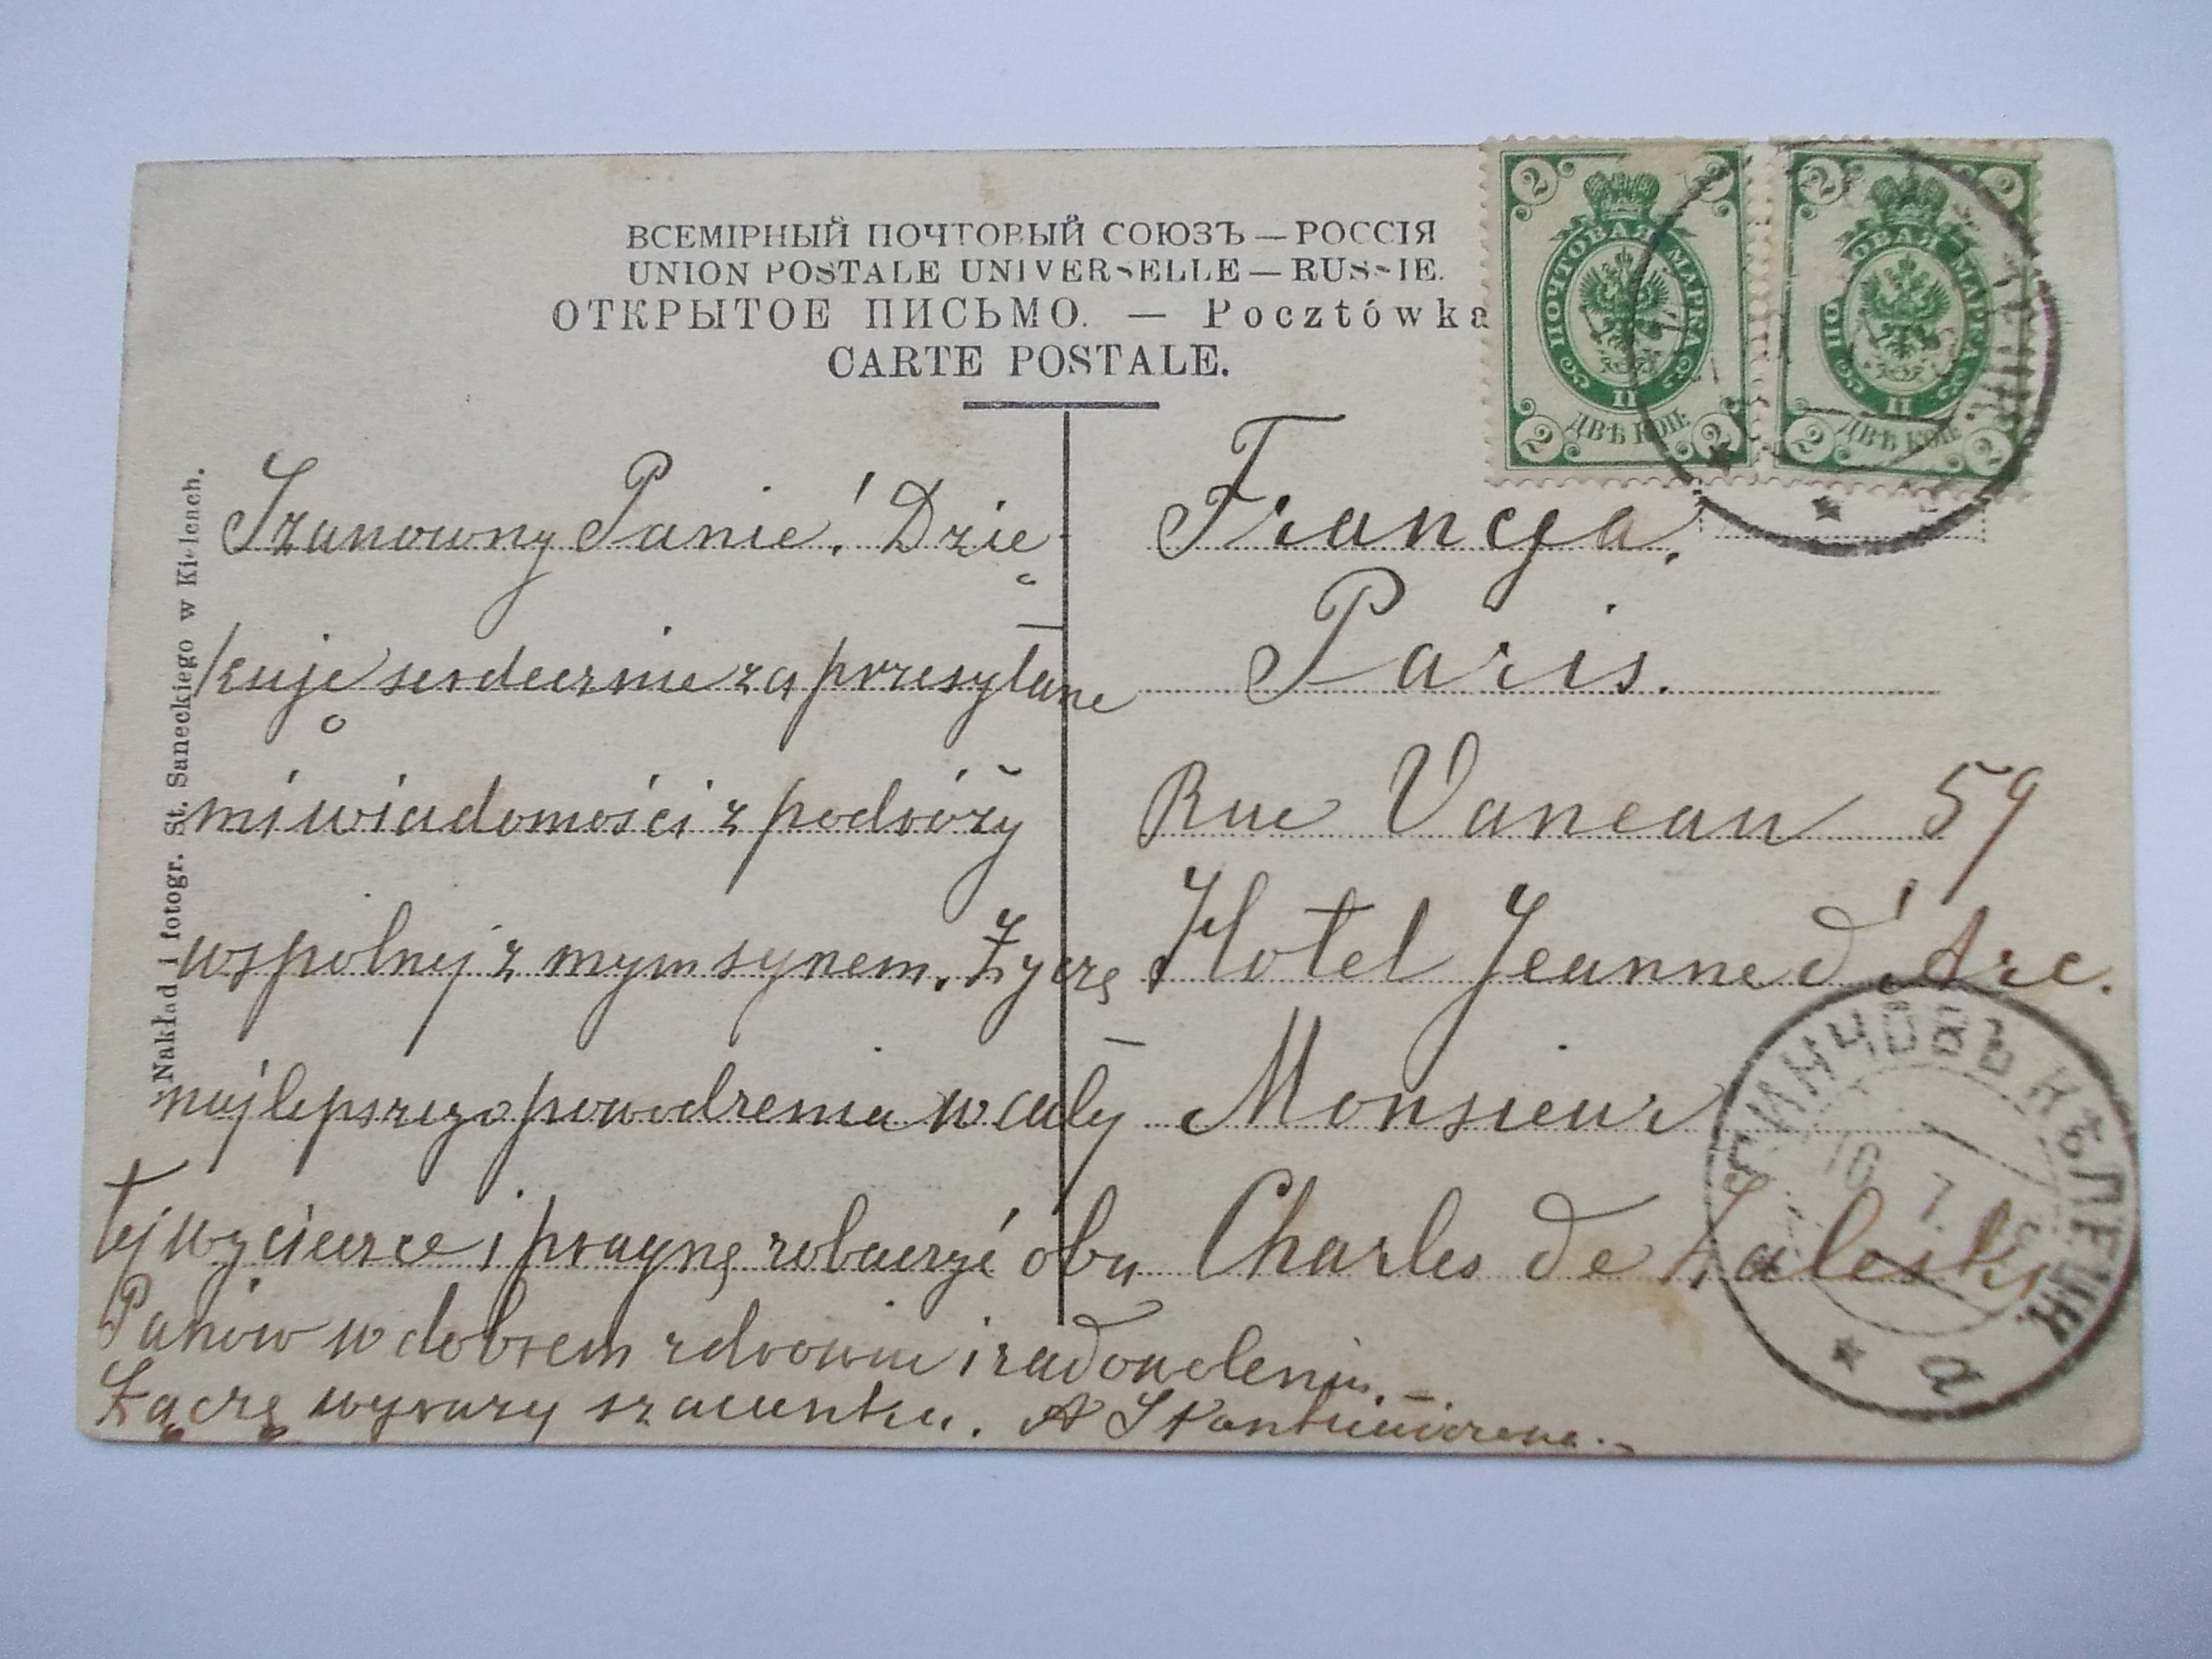 ВСЕМІРНЫЙ ПОЧТОВЫЙ СОЮЗЪ — РОССІЯ
UNION POSTALE UNIVERSELLE — RUSSIE.
ОТКРЫТОЕ ПИСЬМО. — Pocztówka
CARTE POSTALE.
ПОЧТОВАЯ МАРКА
2 2 2 2
II
ДВѢ КОП
ПОЧТОВАЯ МАРКА
2 2 2 2
II
ДВѢ КОП
Nakład i fotogr. St. Saneckiego w Kielcach.
Szanowny Panie! Dzię-
kuję serdecznie za przesyłane
mi wiadomości z podróży
wspólnej z mym synem. Życzę
najlepszego powodzenia w cały
tej wycieczce i pragnę zobaczyć obu
Panów w dobrem zdrowiu i zadowoleniu. –
Łączę wyrazy szacunku. A
Francya.
Paris.
Rue Vaneau 59
Hotel Jeanne d'Arc.
Monsieur
Charles de Zaleski
ПИНЧОВЪ КѢЛЕЦК
16 7
а